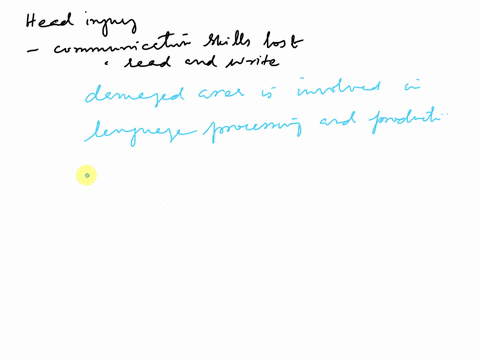 Head injury
- communication skills lost
• read and write
damaged area is involved in
language processing and producti